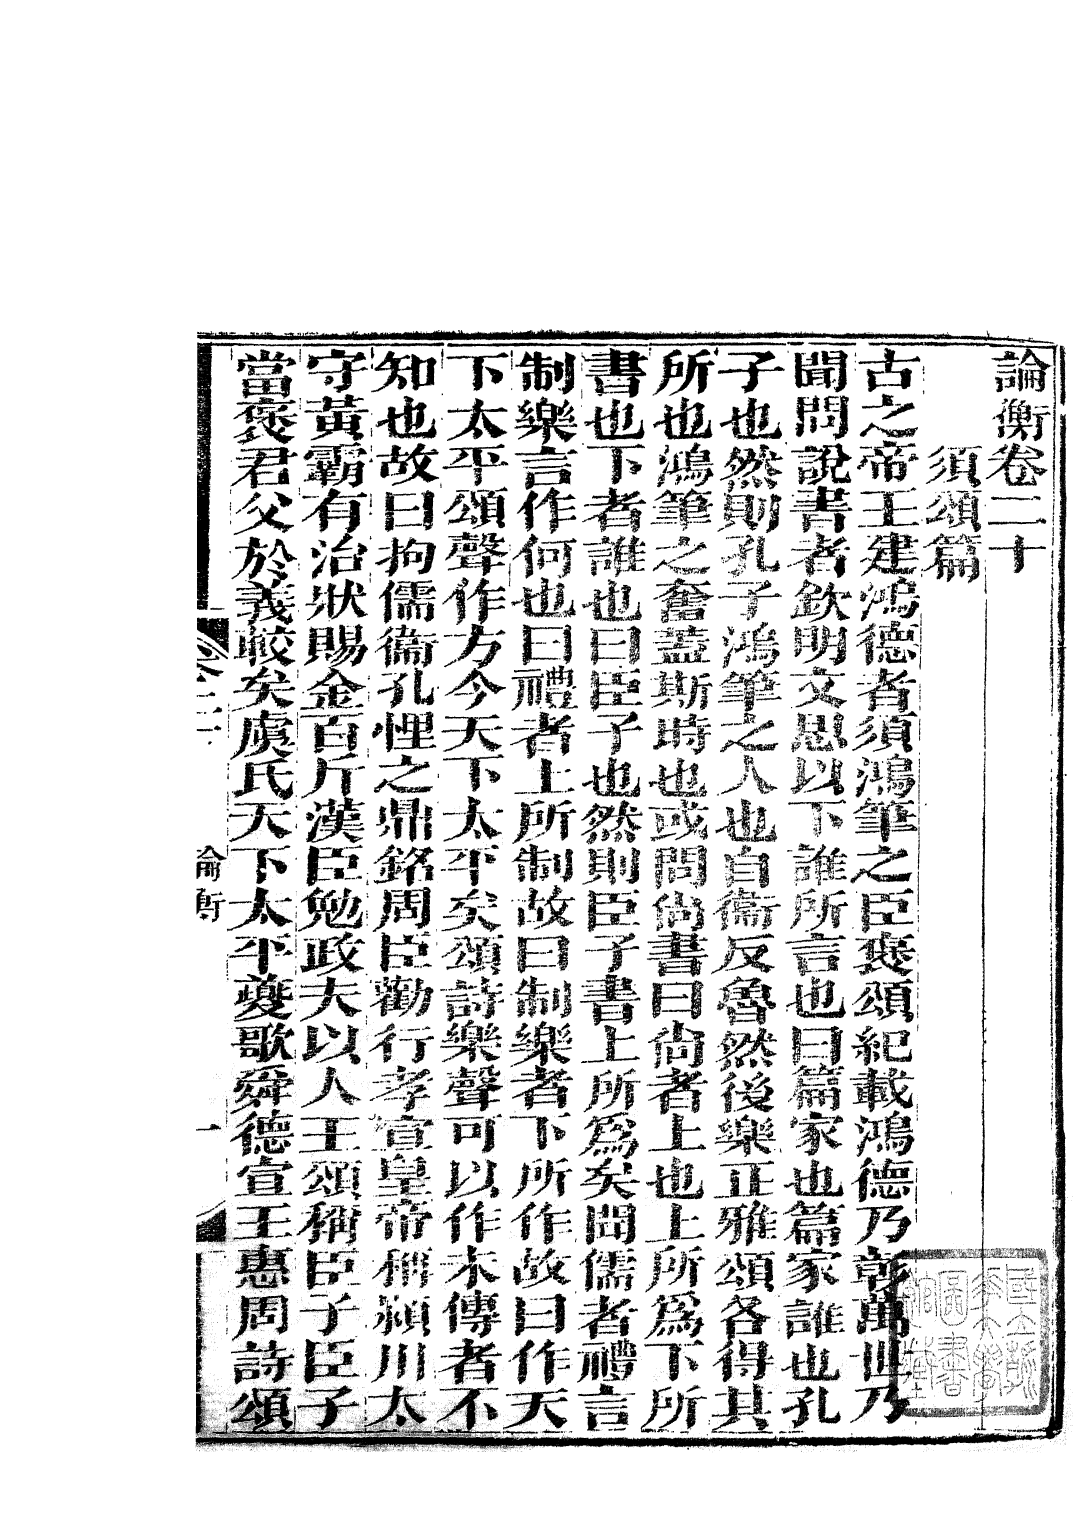 論衡卷二十
須頌篇
古之帝王建鴻德者須鴻筆之臣褒頌紀載鴻德乃彰萬世乃
聞問說書者欽明文思以下誰所言也曰篇家也篇家誰也孔
子也然則孔子鴻筆之人也自衞反魯然後樂正雅頌各得其
所也鴻筆之奮蓋斯時也或問尚書曰尚者上也上所爲下所
書也下者誰也曰臣子也然則臣子書上所爲矣問儒者禮言
制樂言作何也曰禮者上所制故曰制樂者下所作故曰作天
下太平頌聲作方今天下太平矣頌詩樂聲可以作未傳者不
知也故曰拘儒衞孔悝之鼎銘周臣勸行孝宣皇帝稱潁川太
守黃霸有治狀賜金百斤漢臣勉政夫以人王頌稱臣子臣子
當褒君父於義較矣虞氏天下太平夔歌舜德宣王惠周詩頌
卷二十
論衡
一